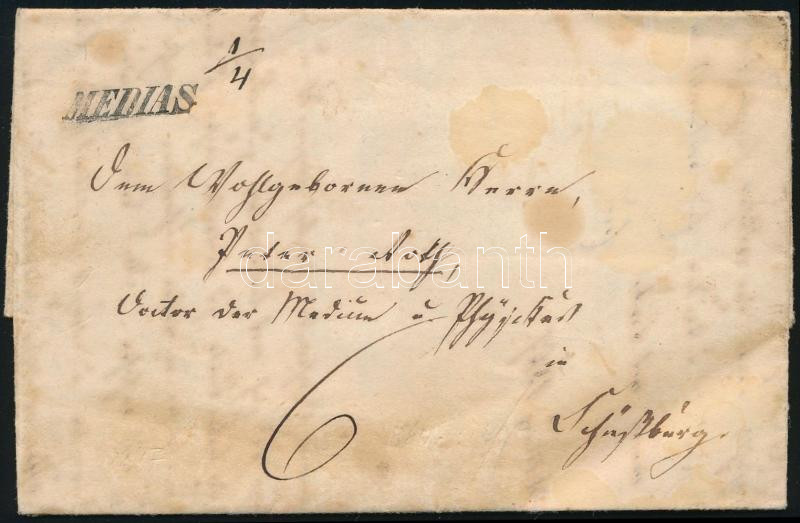 1/4
MEDIAS
Dem Wohlgebornen Herrn,
Peter Roth,
Doctor der Medicin u Physikus
in
Schäßburg.
6
darabanth